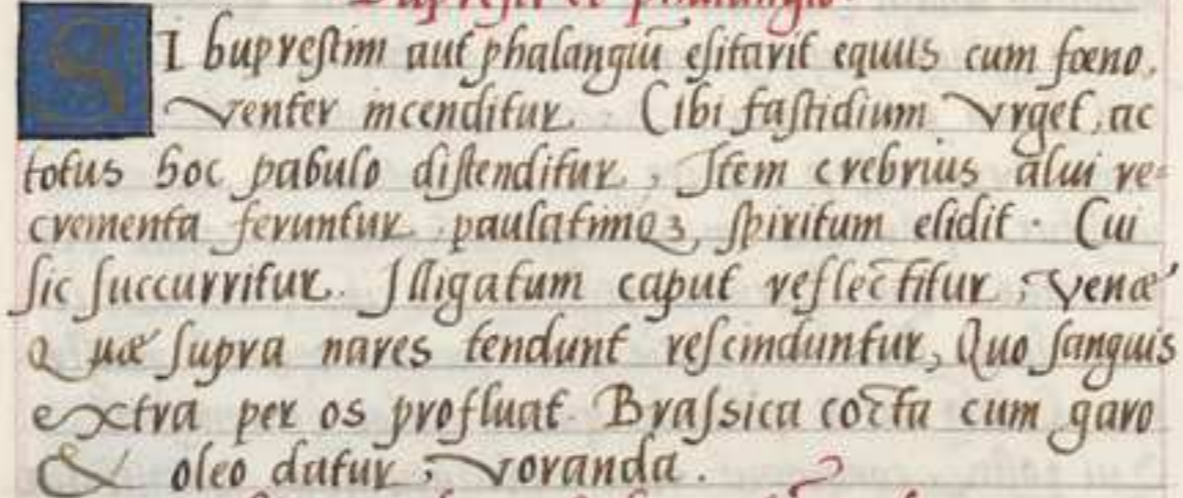 Buprestis et phalangio.
SI buprestim aut phalangiū esitarit equus cum fœno,
venter incenditur. Cibi fastidium vrget, ac
totus hoc pabulo distenditur, Item crebrius alui re-
crementa feruntur paulatimqꝫ spiritum elidit. Cui
sic succurritur. Illigatum caput reflectitur, venæ
Quæ supra nares tendunt rescinduntur, Quo sanguis
extra per os profluat. Brassica cocta cum garo
& oleo datur, voranda.